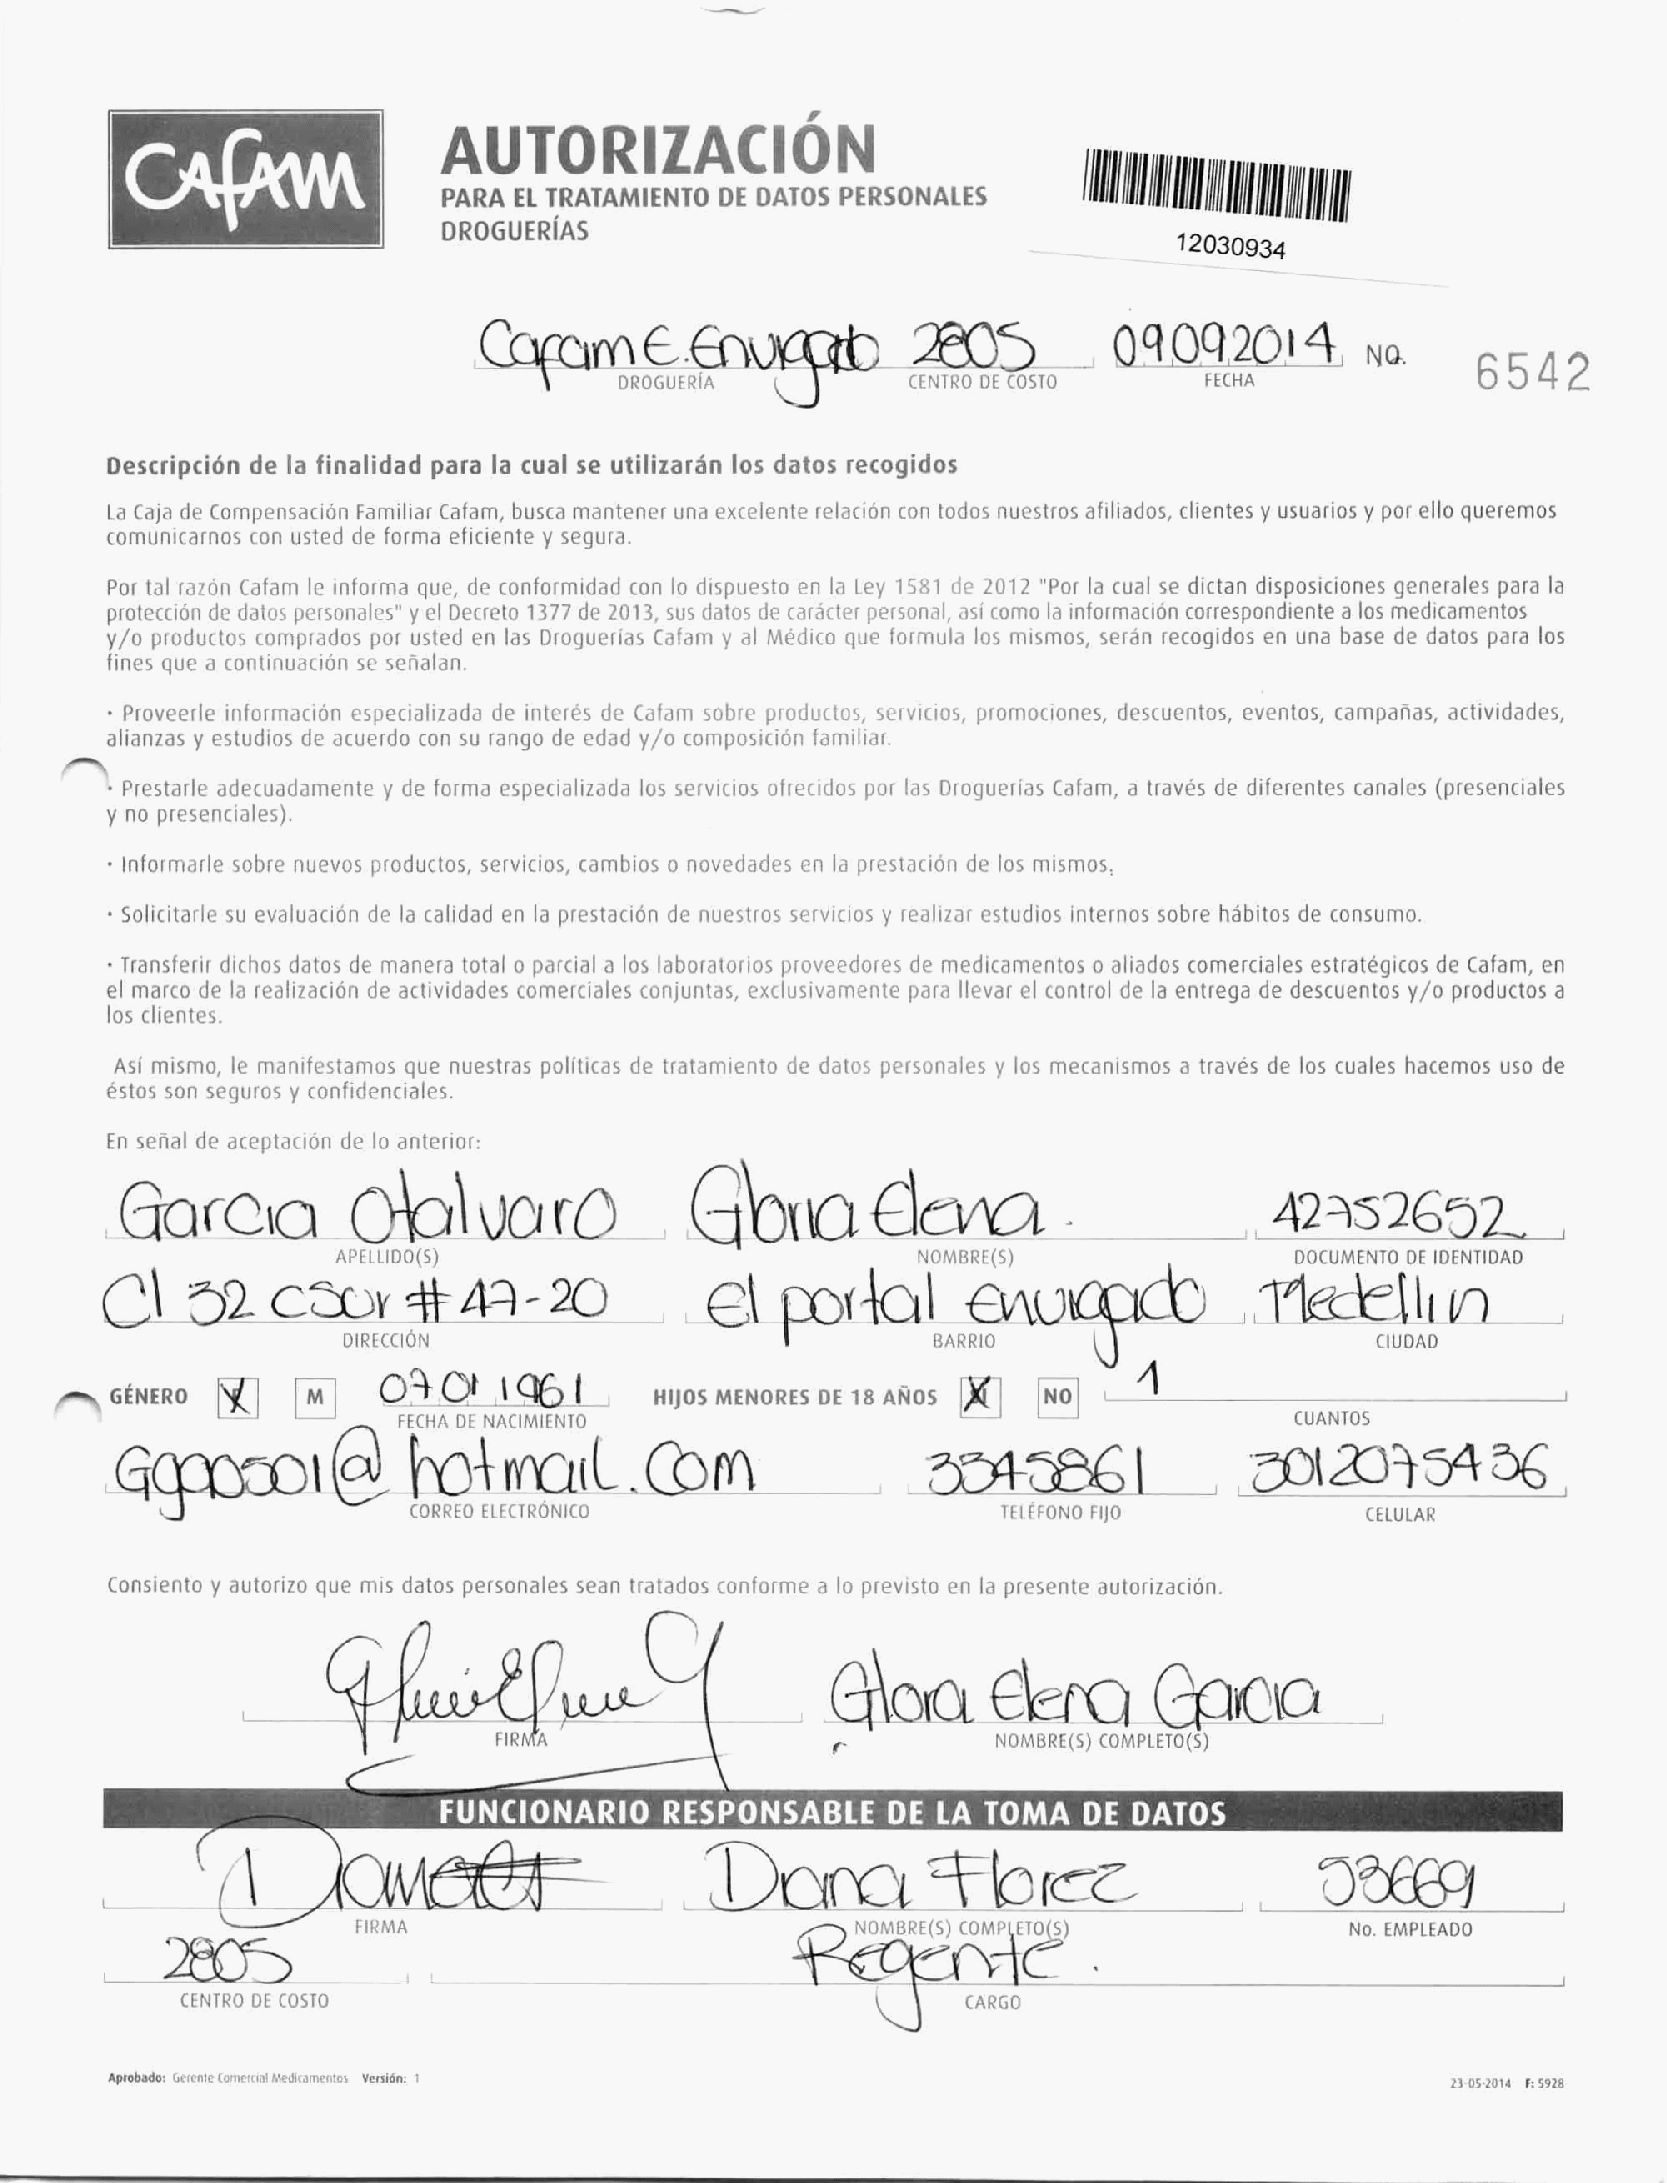 CAFAM
AUTORIZACIÓN
PARA EL TRATAMIENTO DE DATOS PERSONALES
DROGUERÍAS
12030934
Cafam E. Envigado 2805 09092014 NO. 6542
DROGUERÍA CENTRO DE COSTO FECHA
Descripción de la finalidad para la cual se utilizarán los datos recogidos
La Caja de Compensación Familiar Cafam, busca mantener una excelente relación con todos nuestros afiliados, clientes y usuarios y por ello queremos
comunicarnos con usted de forma eficiente y segura.
Por tal razón Cafam le informa que, de conformidad con lo dispuesto en la Ley 1581 de 2012 "Por la cual se dictan disposiciones generales para la
protección de datos personales" y el Decreto 1377 de 2013, sus datos de carácter personal, así como la información correspondiente a los medicamentos
y/o productos comprados por usted en las Droguerías Cafam y al Médico que formula los mismos, serán recogidos en una base de datos para los
fines que a continuación se señalan.
· Proveerle información especializada de interés de Cafam sobre productos, servicios, promociones, descuentos, eventos, campañas, actividades,
alianzas y estudios de acuerdo con su rango de edad y/o composición familiar.
· Prestarle adecuadamente y de forma especializada los servicios ofrecidos por las Droguerías Cafam, a través de diferentes canales (presenciales
y no presenciales).
· Informarle sobre nuevos productos, servicios, cambios o novedades en la prestación de los mismos.
· Solicitarle su evaluación de la calidad en la prestación de nuestros servicios y realizar estudios internos sobre hábitos de consumo.
· Transferir dichos datos de manera total o parcial a los laboratorios proveedores de medicamentos o aliados comerciales estratégicos de Cafam, en
el marco de la realización de actividades comerciales conjuntas, exclusivamente para llevar el control de la entrega de descuentos y/o productos a
los clientes.
Así mismo, le manifestamos que nuestras políticas de tratamiento de datos personales y los mecanismos a través de los cuales hacemos uso de
éstos son seguros y confidenciales.
En señal de aceptación de lo anterior:
Garcia Otalvaro Gloria Elena 42752652
APELLIDO(S) NOMBRE(S) DOCUMENTO DE IDENTIDAD
Cl 32 csur # 47-20 el portal envigado Medellin
DIRECCIÓN BARRIO CIUDAD
GÉNERO X M 07 01 1961 HIJOS MENORES DE 18 AÑOS X NO 1
FECHA DE NACIMIENTO CUANTOS
Ggap0501@hotmail.com 3345861 3012075436
CORREO ELECTRÓNICO TELÉFONO FIJO CELULAR
Consiento y autorizo que mis datos personales sean tratados conforme a lo previsto en la presente autorización.
Gloria Elena Garcia
FIRMA NOMBRE(S) COMPLETO(S)
FUNCIONARIO RESPONSABLE DE LA TOMA DE DATOS
Diana Florez 53669
FIRMA NOMBRE(S) COMPLETO(S) No. EMPLEADO
2805 Regente.
CENTRO DE COSTO CARGO
Aprobado: Gerente Comercial Medicamentos Versión: 1 23-05-2014 F: 5928